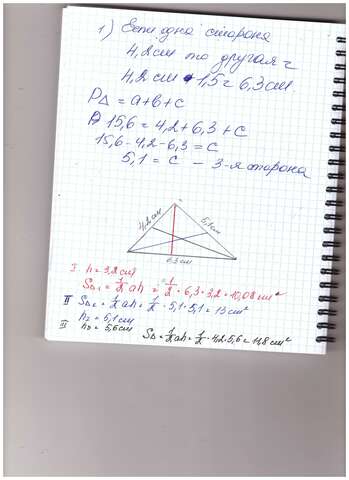 1) Если одна сторона
4,2 см то другая =
4,2 см · 1,5 = 6,3 см.
P△ = a+b+c
15,6 = 4,2 + 6,3 + c
15,6 - 4,2 - 6,3 = c
5,1 = c - 3-я сторона
4,2 см
5,1 см
6,3 см
I. h = 3,2 см
S△₁ = 1/2 ah = 1/2 · 6,3 · 3,2 = 10,08 см²
II S△₂ = 1/2 ah = 1/2 · 5,1 · 5,1 = 13 см²
h₂ = 5,1 см
III h₃ = 5,6 см
S△ = 1/2 ah = 1/2 · 4,2 · 5,6 = 11,8 см²